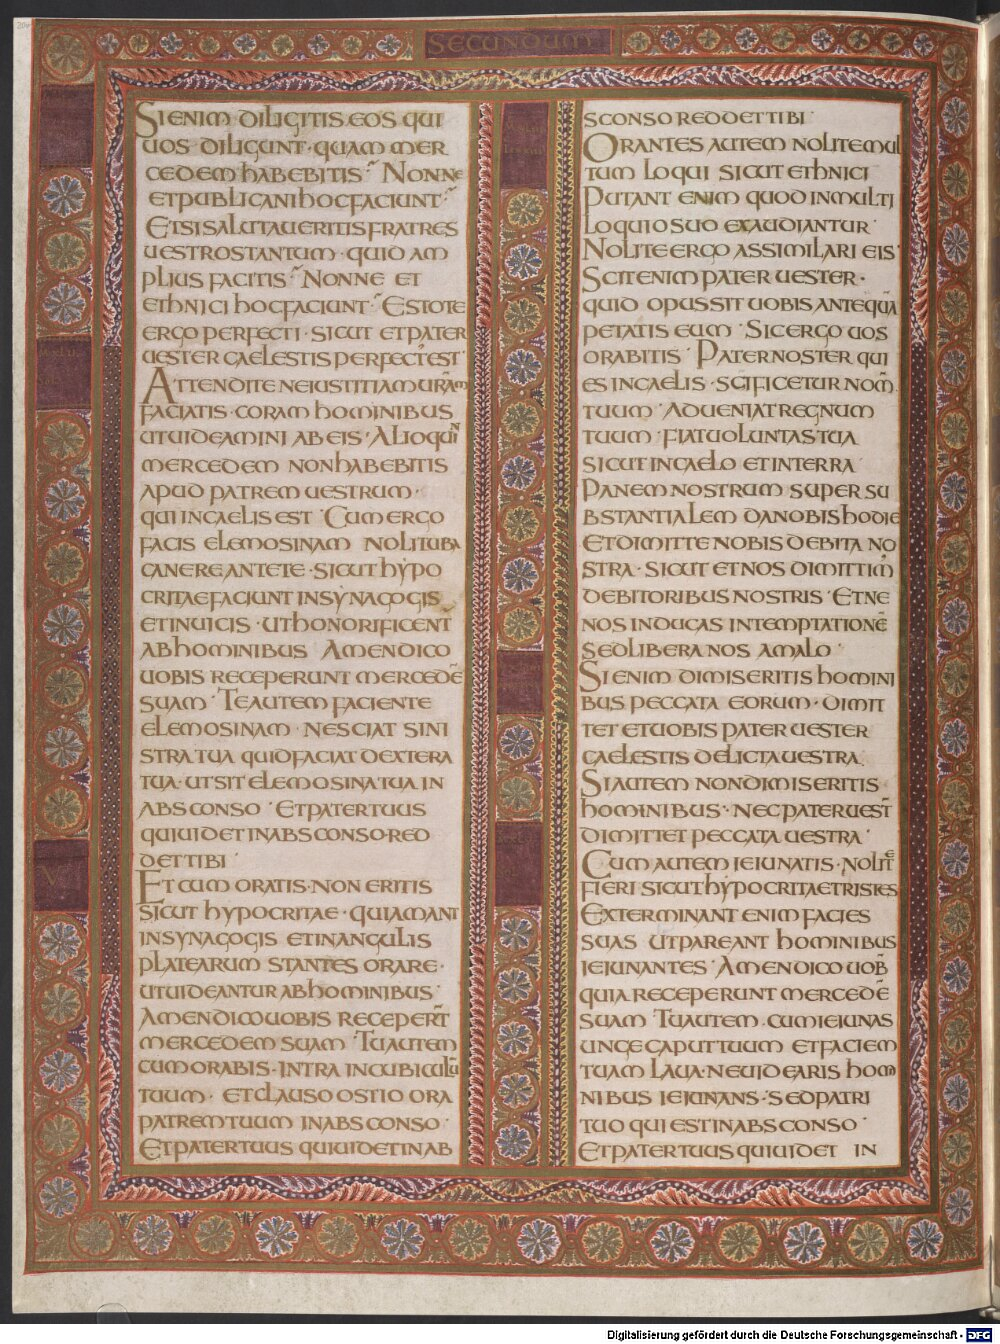 SECUNDUM
SI ENIM DILIGITIS EOS QUI
UOS DILIGUNT · QUAM MER
CEDEM HABEBITIS · NONNE
ET PUBLICANI HOC FACIUNT ·
ET SI SALUTAUERITIS FRATRES
UESTROS TANTUM · QUID AM
PLIUS FACITIS · NONNE ET
ETHNICI HOC FACIUNT · ESTOTE
ERGO PERFECTI · SICUT ET PATER
UESTER CAELESTIS PERFECT' EST ·
ATTENDITE NE IUSTITIAM URAM
FACIATIS · CORAM HOMINIBUS
UT UIDEAMINI AB EIS · ALIOQUIN
MERCEDEM NON HABEBITIS
APUD PATREM UESTRUM ·
QUI IN CAELIS EST · CUM ERGO
FACIS ELEMOSINAM NOLI TUBA
CANERE ANTE TE · SICUT HYPO
CRITAE FACIUNT IN SYNAGOGIS
ET IN UICIS · UT HONORIFICENT
AB HOMINIBUS AMEN DICO
UOBIS RECEPERUNT MERCEDĒ
SUAM · TE AUTEM FACIENTE
ELEMOSINAM · NESCIAT SINI
STRA TUA QUID FACIAT DEXTERA
TUA · UT SIT ELEMOSINA TUA IN
ABSCONSO · ET PATER TUUS
QUI UIDET IN ABSCONSO · RED
DET TIBI ·
ET CUM ORATIS · NON ERITIS
SICUT HYPOCRITAE · QUI AMANT
IN SYNAGOGIS ET IN ANGULIS
PLATEARUM STANTES ORARE ·
UT UIDEANTUR AB HOMINIBUS ·
AMEN DICO UOBIS RECEPER̄T
MERCEDEM SUAM · TU AUTEM
CUM ORABIS · INTRA IN CUBICULŪ
TUUM · ET CLAUSO OSTIO ORA
PATREM TUUM IN ABSCONSO ·
ET PATER TUUS QUI UIDET IN AB
SCONSO REDDET TIBI ·
ORANTES AUTEM NOLITE MUL
TUM LOQUI SICUT ETHNICI
PUTANT ENIM QUOD IN MULTI
LOQUIO SUO EXAUDIANTUR ·
NOLITE ERGO ASSIMILARI EIS ·
SCIT ENIM PATER UESTER ·
QUID OPUS SIT UOBIS ANTEQUĀ
PETATIS EUM · SIC ERGO UOS
ORABITIS · PATER NOSTER QUI
ES IN CAELIS · SC̄IFICETUR NOM̄
TUUM · ADUENIAT REGNUM
TUUM · FIAT UOLUNTAS TUA
SICUT IN CAELO ET IN TERRA
PANEM NOSTRUM SUPERSU
BSTANTIALEM DA NOBIS HODIE
ET DIMITTE NOBIS DEBITA NO
STRA · SICUT ET NOS DIMITTIM'
DEBITORIBUS NOSTRIS · ET NE
NOS INDUCAS IN TEMPTATIONĒ
SED LIBERA NOS A MALO ·
SI ENIM DIMISERITIS HOMINI
BUS PECCATA EORUM · DIMIT
TET ET UOBIS PATER UESTER
CAELESTIS DELICTA UESTRA ·
SI AUTEM NON DIMISERITIS
HOMINIBUS · NEC PATER UEST̄
DIMITTET PECCATA UESTRA ·
CUM AUTEM IEIUNATIS · NOLITE
FIERI SICUT HYPOCRITAE TRISTES
EXTERMINANT ENIM FACIES
SUAS UT PAREANT HOMINIBUS
IEIUNANTES · AMEN DICO UOB̄
QUIA RECEPERUNT MERCEDĒ
SUAM TU AUTEM · CUM IEIUNAS
UNGE CAPUT TUUM ET FACIEM
TUAM LAUA · NE UIDEARIS HOMI
NIBUS IEIUNANS · SED PATRI
TUO QUI EST IN ABSCONSO ·
ET PATER TUUS QUI UIDET IN
Digitalisierung gefördert durch die Deutsche Forschungsgemeinschaft - DFG